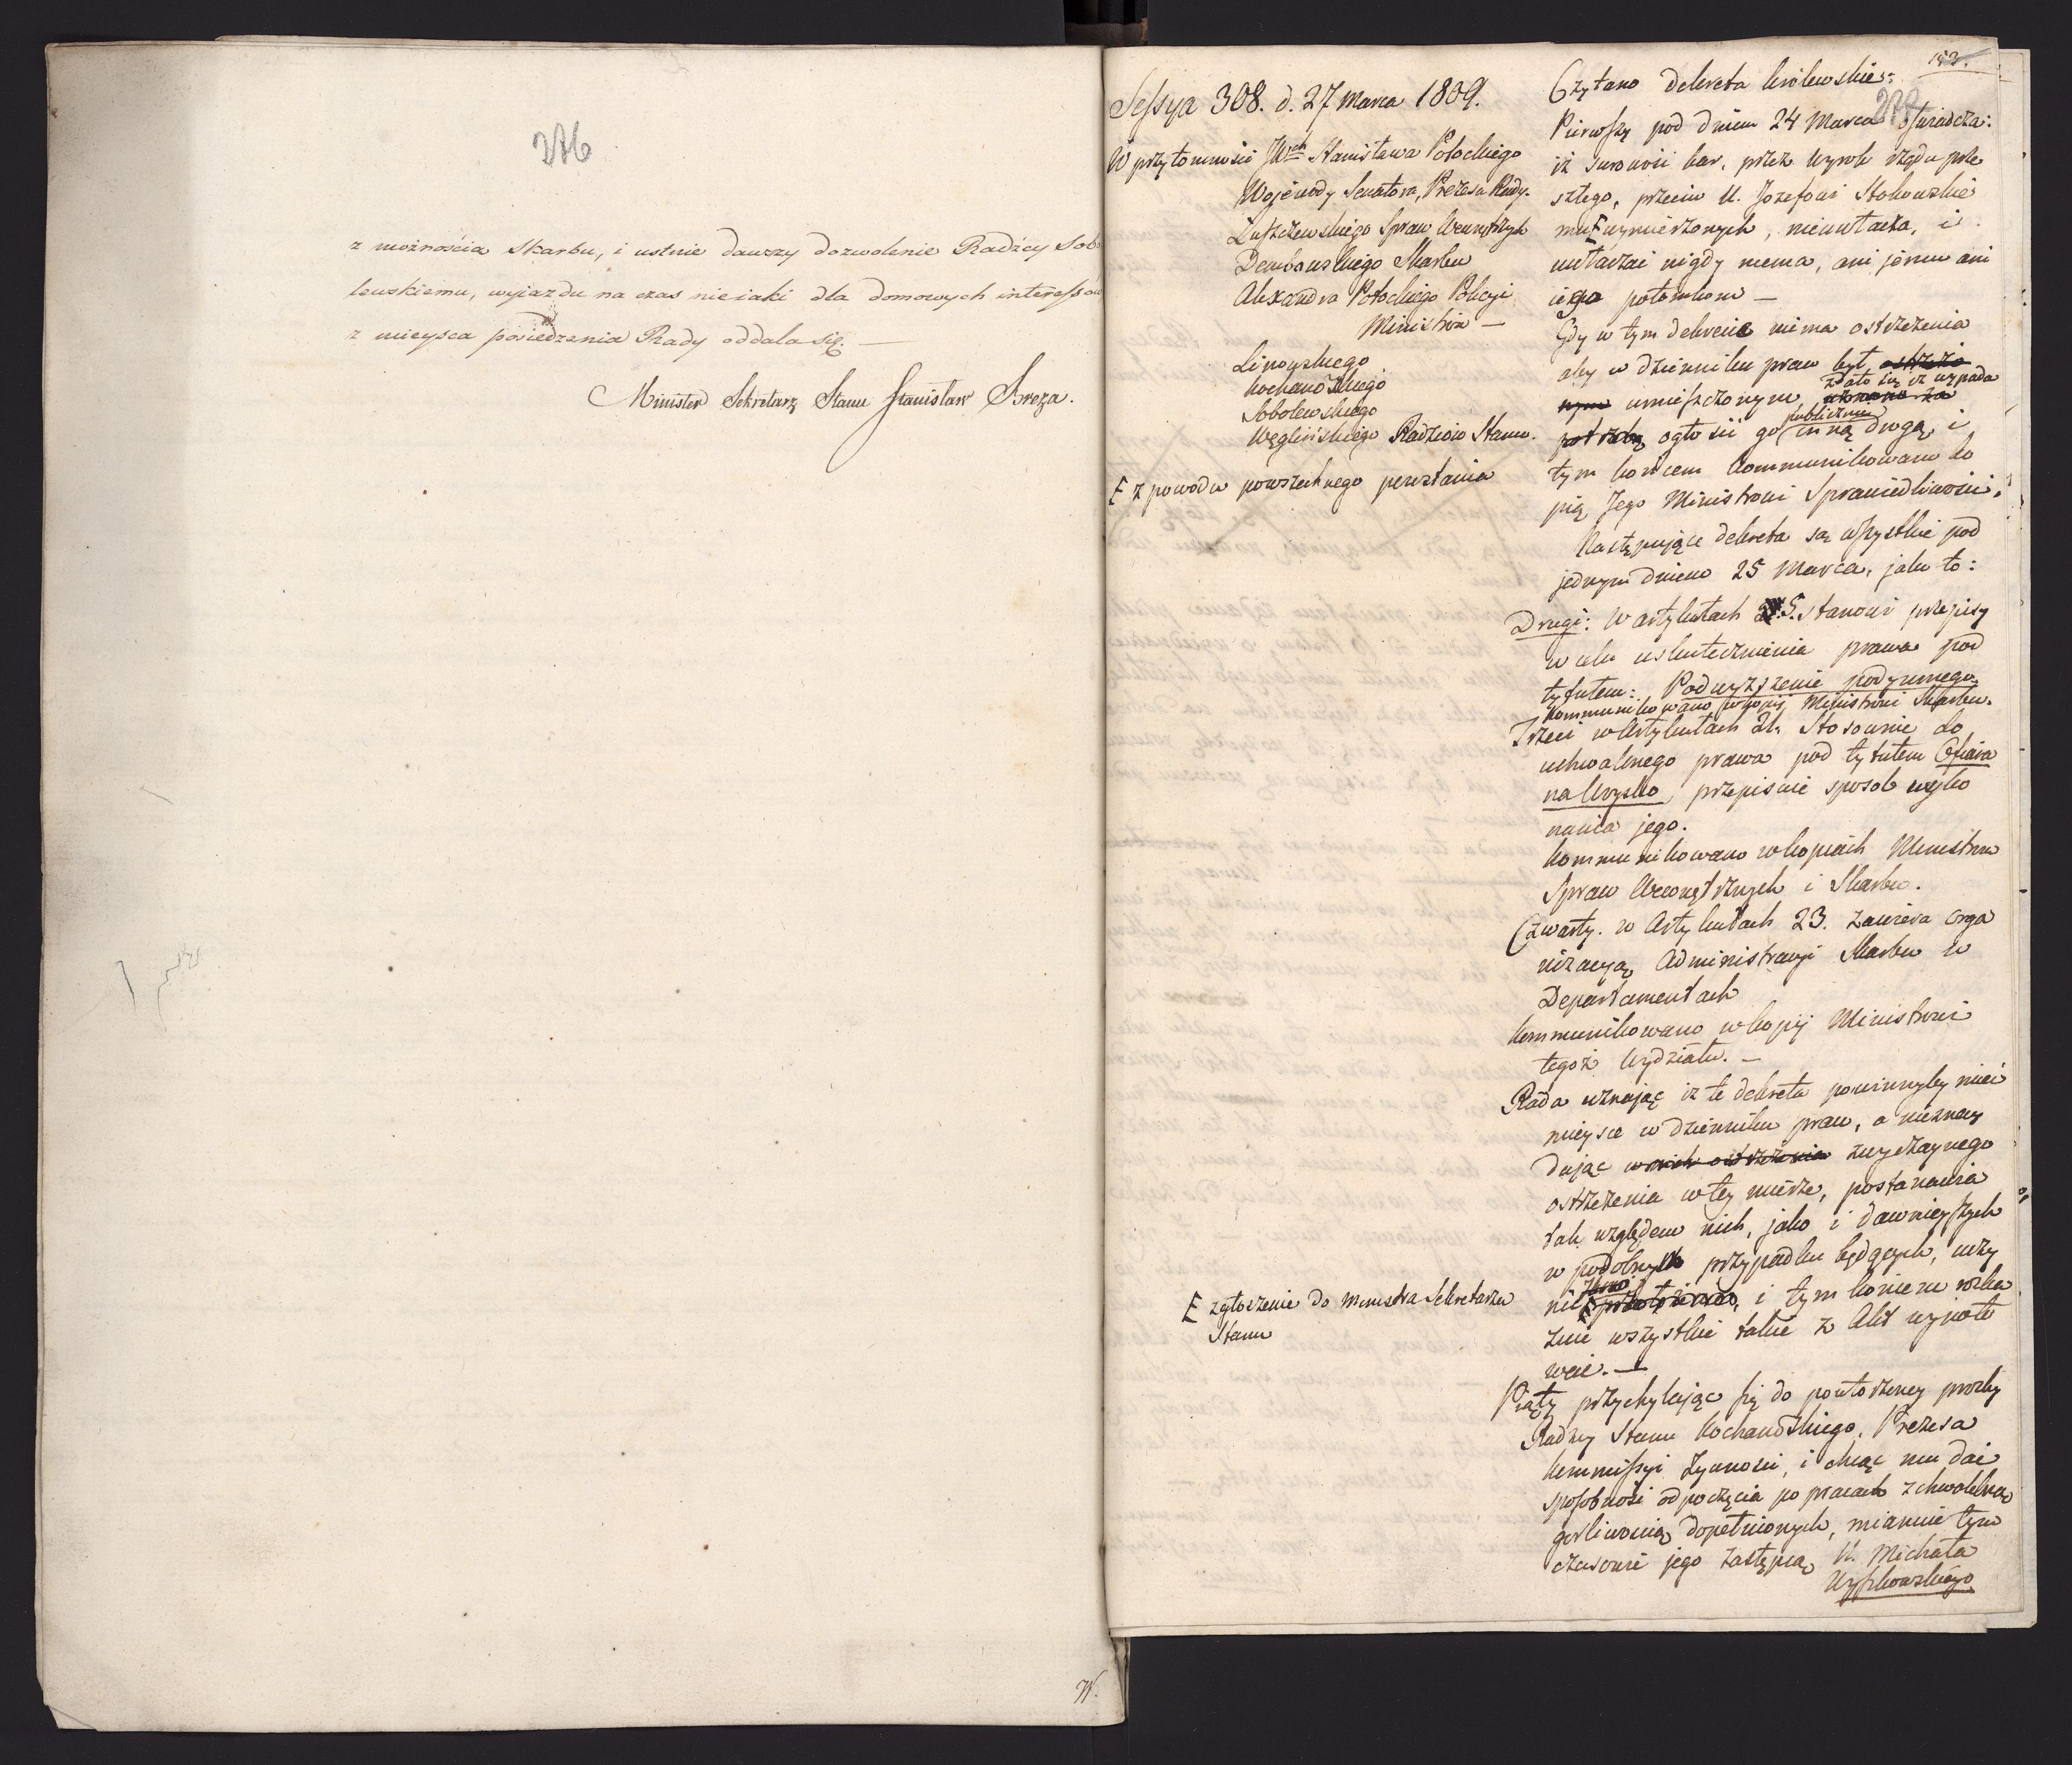 276
z możnościa Skarbu, i ustnie dawszy dozwolenie Radźcy Sobo
lewskiemu, wyjazdu na czas nieiaki dla domowych interessow
z mieysca posiedzenia Rady oddala się. —
Minister Sekretarz Stanu Stanisław Breza.
W.
153.
Sessya 308. d. 27 Marca 1809.
W przytomności JWch Stanisława Potockiego
Wojewody Senatora, Prezesa Rady.
Łuszczewskiego Spraw Wewnętrznych
Dembowskiego Skarbu
Alexandra Potockiego Policyi
Ministrów —
Linowskiego
Kochanowskiego
Sobolewskiego
Węglińskiego Radzców Stanu.
E z powodu powszechnego powstania
E zgłoszenie do Ministra Sekretarza
Stanu
Czytano dekreta królewskie:
Pierwszy pod dniem 24 Marca oświadcza:
iż surowość kar, przez wyrok rządu prze
szłego, przeciw U. Jozefowi Stokowskie
mu E wymierzonych, nieuwłacza, i
uwłaczać nigdy niema, ani jemu ani
iego potomkom —
Gdy w tym dekrecie nima ostrzeżenia
aby w dzienniku praw był ostrzeżo
nym umieszczonym zdało się iż wypada uznano za
potrzebę ogłosić go publicznie inną drogą, i
tym końcem kommunikowano ko
pią Jego Ministrowi Sprawiedliwości.
Następujące dekreta są wszystkie pod
jednym dniem 25 Marca, jako to:
Drugi: w artykułach 5. stanowi przepisy
w celu uskutecznienia prawa pod
tytułem: Podwyższenie podymnego.
Kommunikowano w kopij Ministrowi Skarbu.
Trzeci w Artykułach 21. Stosownie do
uchwalonego prawa pod tytułem Ofiara
na Woysko, przepisuie sposob wyko
nania jego.
Kommunikowano w kopiach Ministrom
Spraw Wewnętrznych i Skarbu.
Czwarty. w Artykułach 23. zawiera orga
nizacyą Administracyi Skarbu w
Departamentach
Kommunikowano w kopij Ministrowi
tegoż Wydziału. —
Rada uznając iż te dekreta powinnyby mieć
mieysce w dzienniku praw, a nieznay
dując w nich ostrzeżenia zwyczaynego
ostrzeżenia w tey mierze, postanawia
tak względem nich, jako i dawnieyszych
w podobnym przypadku będących, uczy
nić E, i tym końcem rozka
zuie wszystkie takie z Akt wynoto
wać. —
Piąty przychylając się do powtorzoney prozby
Radzcy Stanu Kochanowskiego, Prezesa
Kommissyi Żywności, i chcąc mu dać
sposobność odpoczęcia po pracach z chwalebną
gorliwością dopełnionych, mianuie tym
czasowie jego zastępcą U. Michała
Wyszkowskiego